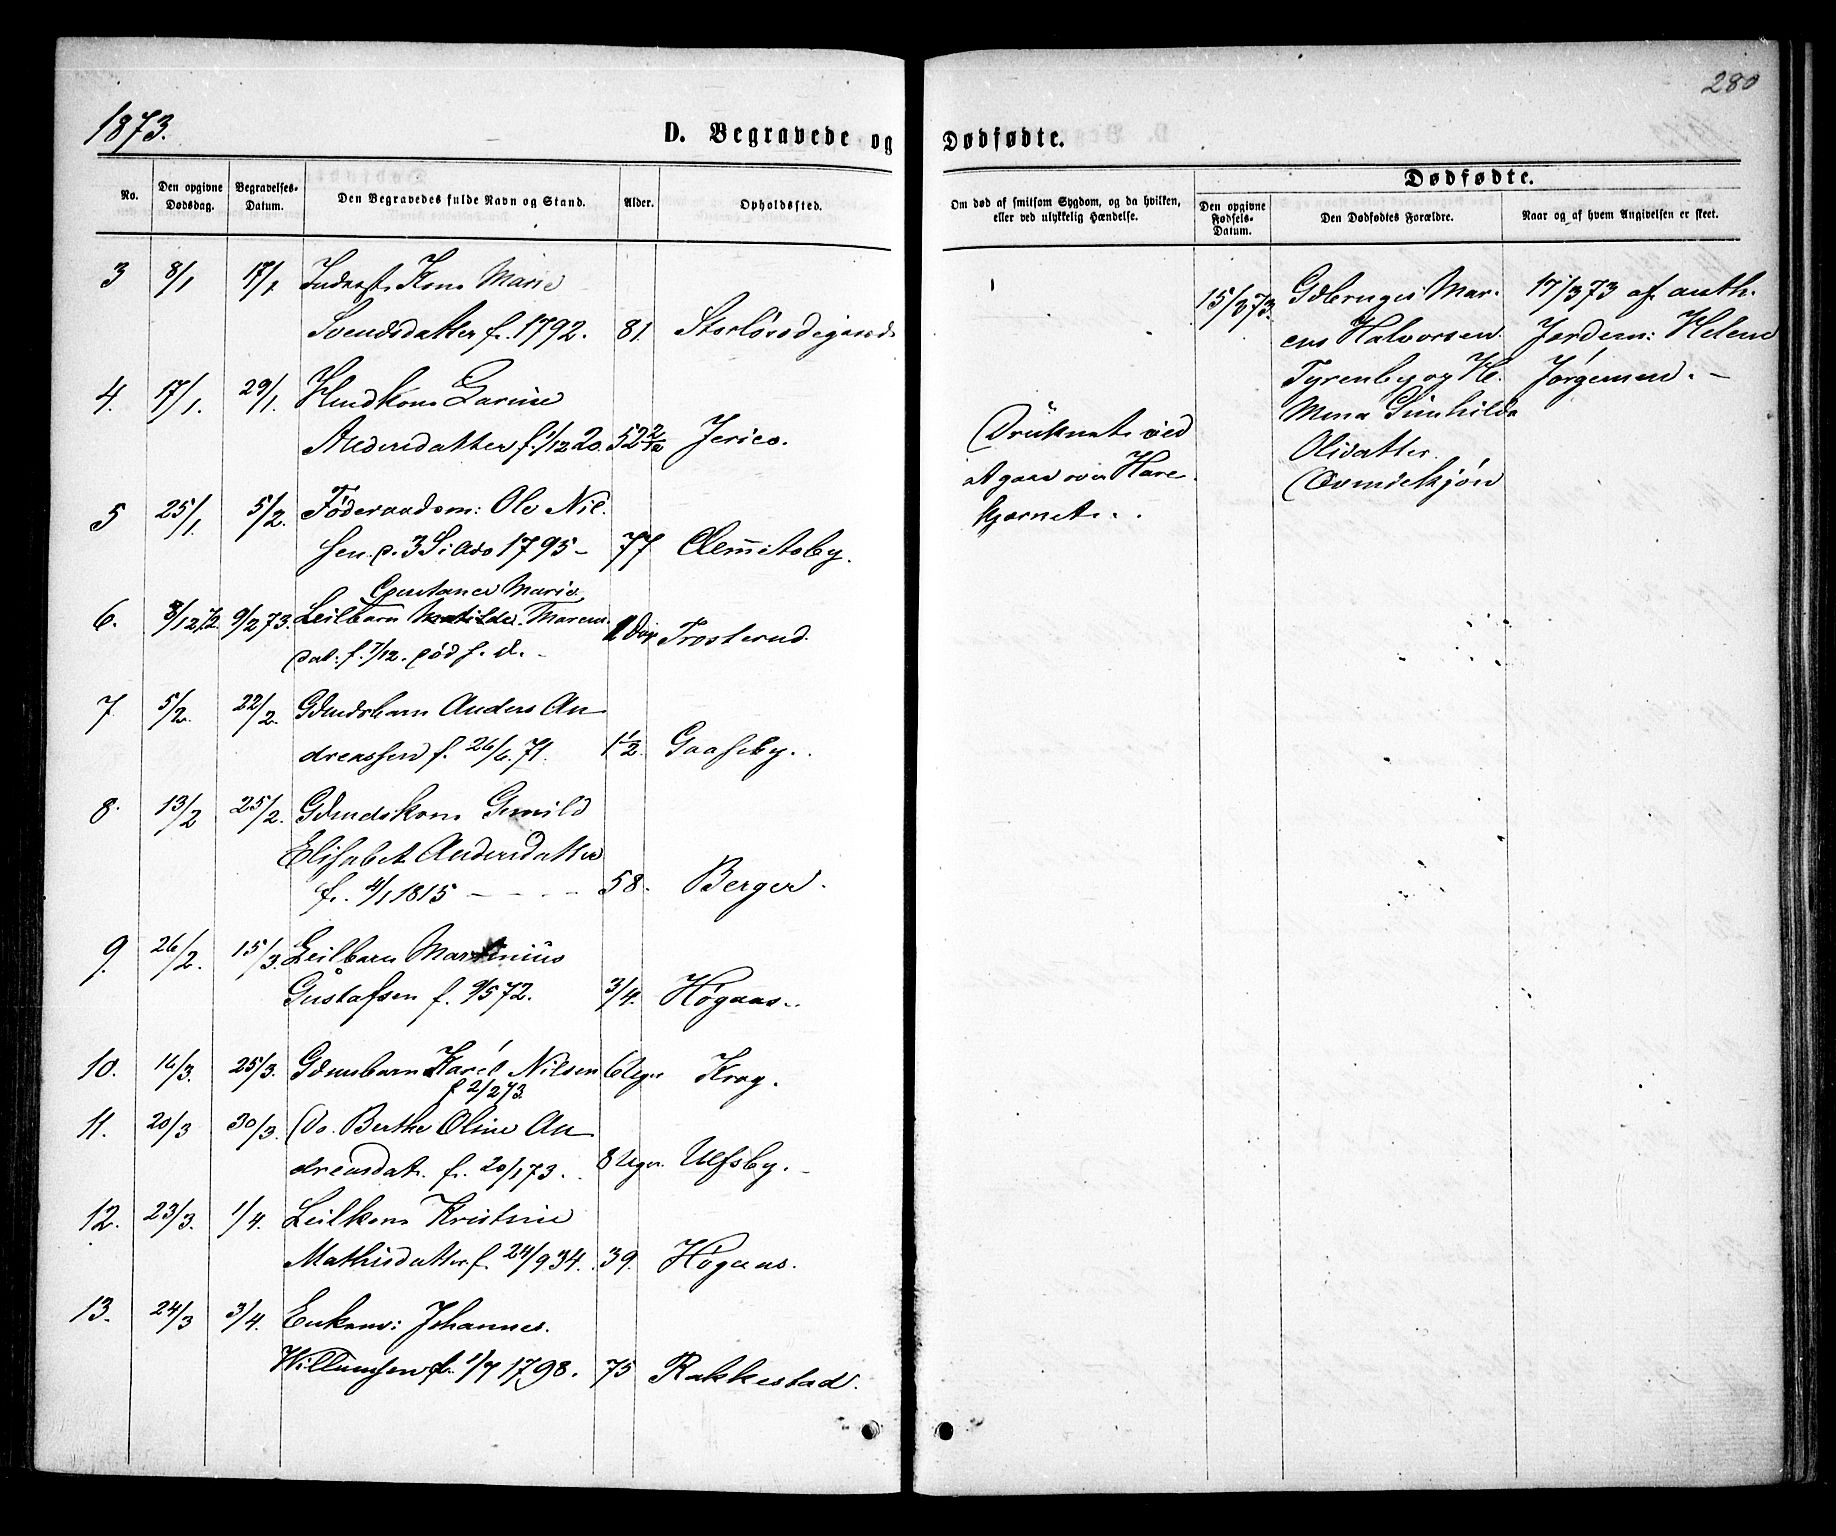 280
1873.
D. Begravede og Dødfødte.
No.
Den opgivne Dødsdag.
Begravelses-Datum.
Den Begravedes fulde Navn og Stand.
Alder.
Opholdssted.
Om død af smitsom Sygdom, og da hvilken, eller ved ulykkelig Hændelse.
Dødfødte.
Den opgivne Fødsels-Datum.
Den Dødfødtes Forældre.
Naar og af hvem Angivelsen er skeet.
3 8/1 17/1 Inderst. Kone Marie
Svendsdatter f. 1792. 81.
4. 17/1. 29/1. Kone Larine
Andersdatter f. 1/12 20. 52 2/12 Jerico.
Druknet ved
at gaa over Hare
kjærnet.
5 25/1. 5/2. Føderaadsm: Ole Nil
sen. 1795 - 77 Clemmetsby.
Constance Marie
6. 8/12 72. 9/2 73. Leilbarn Matilde Maren
dat: f. 7/12. død f. d. 1 Dag Trosterud.
7. 5/2. 22/2. Gdmdsbarn Anders An
dreassen f. 26/6. 71. 1 1/2. Gaaseby.
8. 13/2 25/2. Gdmdskone Gunild
Elisabet Andersdatter
f. 4/1 1815 - 58. Berger.
9. 26/2. 15/3. Leilbarn Martinius
Gustafsen f. 9/5 72. 3/4. Høgaas.
10. 16/3. 25/3. Gdmsbarn Karel Nilsen 6 Uger Krog.
f 2/2 73.
11. 20/3 30/3. Do. Berthe Oline An
dreasdat. f. 20/1 73. 8 Uger. Ulfsby.
12. 23/3. 1/4. Leilkone Kristine
Mathisdatter f. 24/9 34. 39. Høgaas.
13. 24/3 3/4. Enkem: Johannes
Willumsen f. 1/7 1798. 75 Rakkestad.
15/3 73. Gdbruger Mar
cus Halvorsen
Tyrenby og H.
Mina Gunhilda
Olsdatter
17/3 73 af auth.
Jordem: Helene
Jørgensen. -